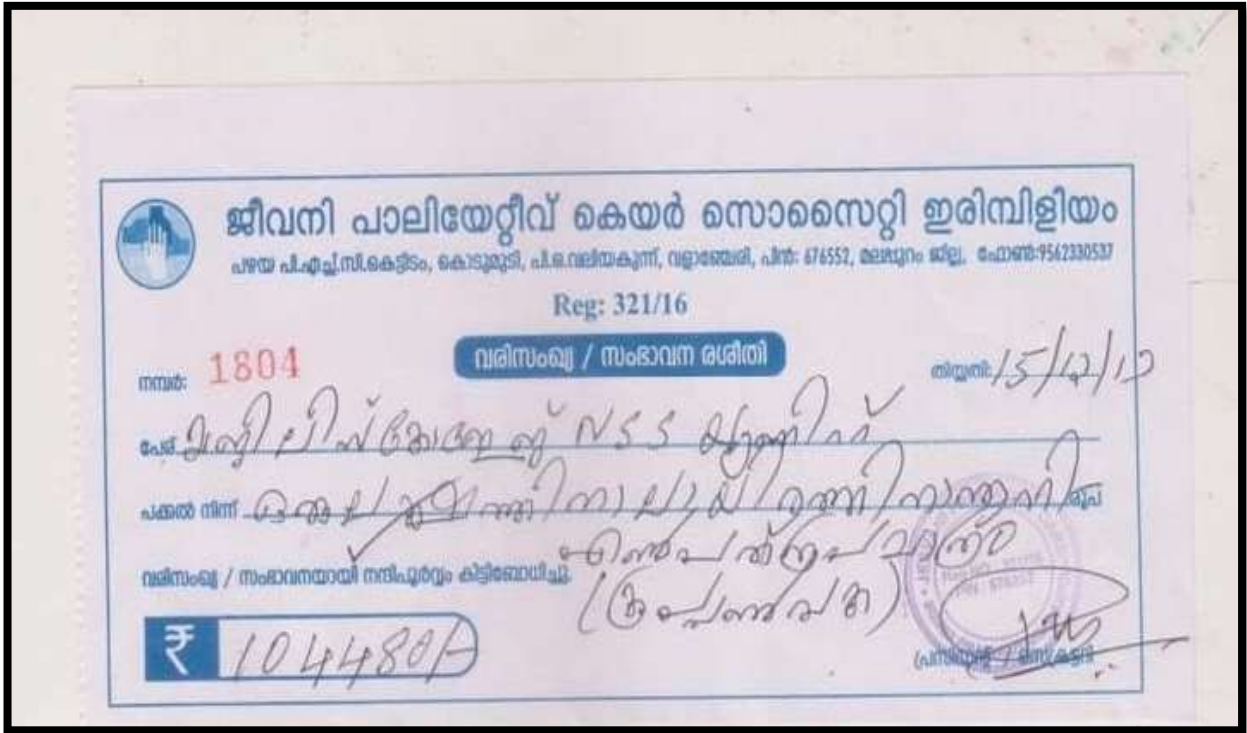 ജീവനി പാലിയേറ്റീവ് കെയർ സൊസൈറ്റി ഇരിമ്പിളിയം
പഴയ പി.എച്ച്.സി.കെട്ടിടം, കൊടുമുടി, പി.ഒ.വലിയകുന്ന്, വളാഞ്ചേരി, പിൻ: 676552, മലപ്പുറം ജില്ല, ഫോൺ:9562330537
Reg: 321/16
വരിസംഖ്യ / സംഭാവന രശീതി
നമ്പർ: 1804 തിയ്യതി: 15/12/17
പേര് കോളേജ് NSS യൂണിറ്റ്
പക്കൽ നിന്ന് രൂപ
വരിസംഖ്യ / സംഭാവനയായി നന്ദിപൂർവ്വം കിട്ടിബോധിച്ചു.
₹ 104480/-
പ്രസിഡണ്ട് / സെക്രട്ടറി